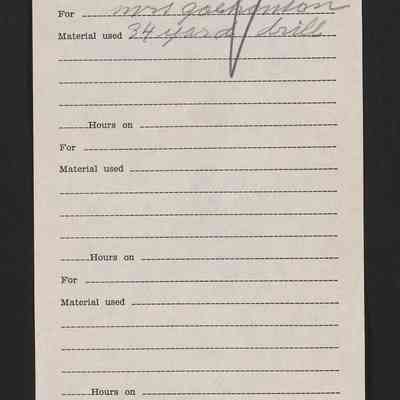 For Mrs
Material used 34 yard drill
Hours on
For
Material used
Hours on
For
Material used
Hours on